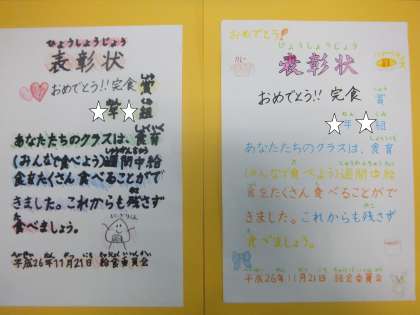 ひょうしょうじょう
表彰状
おめでとう!! 完食 賞
年 組
あなたたちのクラスは、食育
(みんなで食べよう)週間中給
食をたくさん食べることがで
きました。これからも残さず
食べましょう。
平成26年11月21日 給食委員会
おめでとう!
ひょうしょうじょう
表彰状
おめでとう!! 完食 賞
年 組
あなたたちのクラスは、食育
(みんなで食べよう)週間中給
食をたくさん食べることがで
きました。これからも残さず
食べましょう。
平成26年11月21日 給食委員会